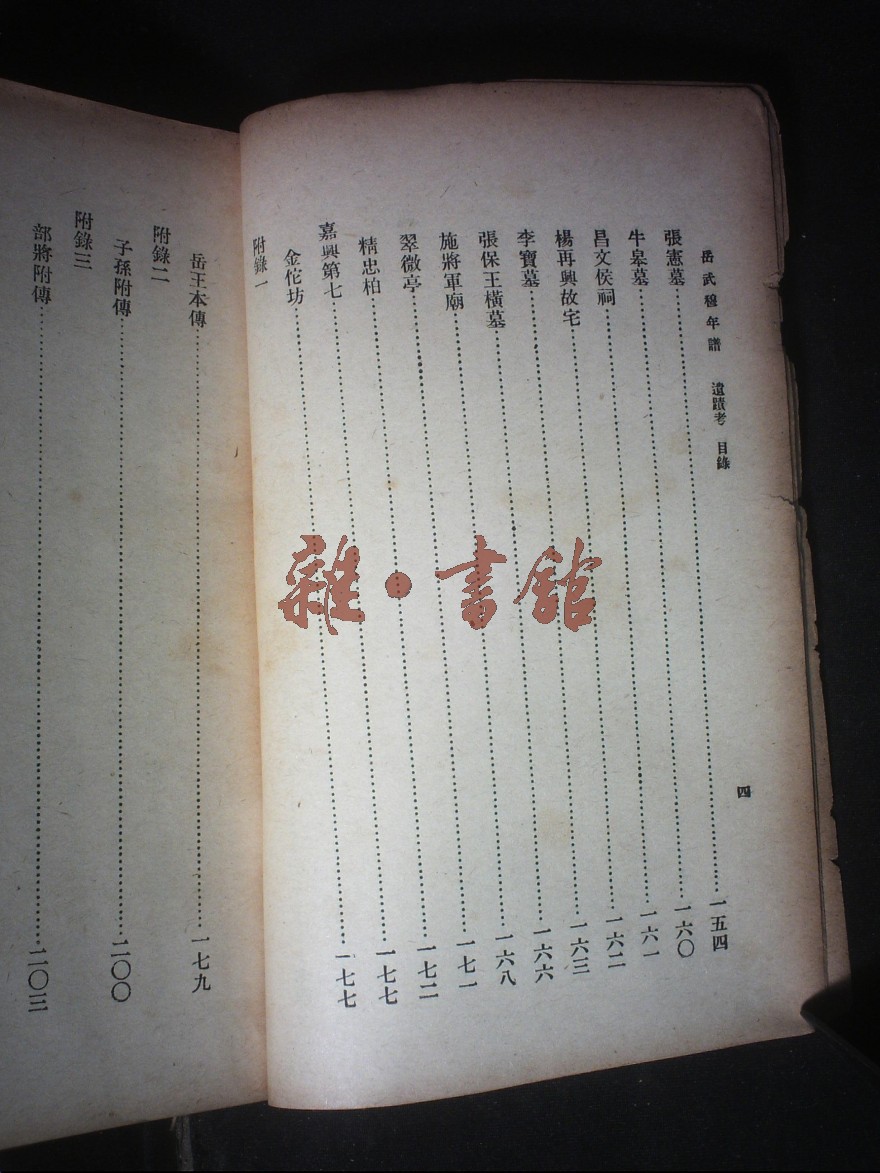 岳武穆年譜 遺蹟考 目錄 四
張憲墓……一五四
牛皋墓……一六〇
昌文侯祠……一六一
楊再興故宅……一六二
李寶墓……一六三
張保王橫墓……一六六
施將軍廟……一六八
翠微亭……一七一
精忠柏……一七二
嘉興第七……一七七
金佗坊……一七七
附錄一
岳王本傳……一七九
附錄二
子孫附傳……二〇〇
附錄三
部將附傳……二〇三
雜·書館